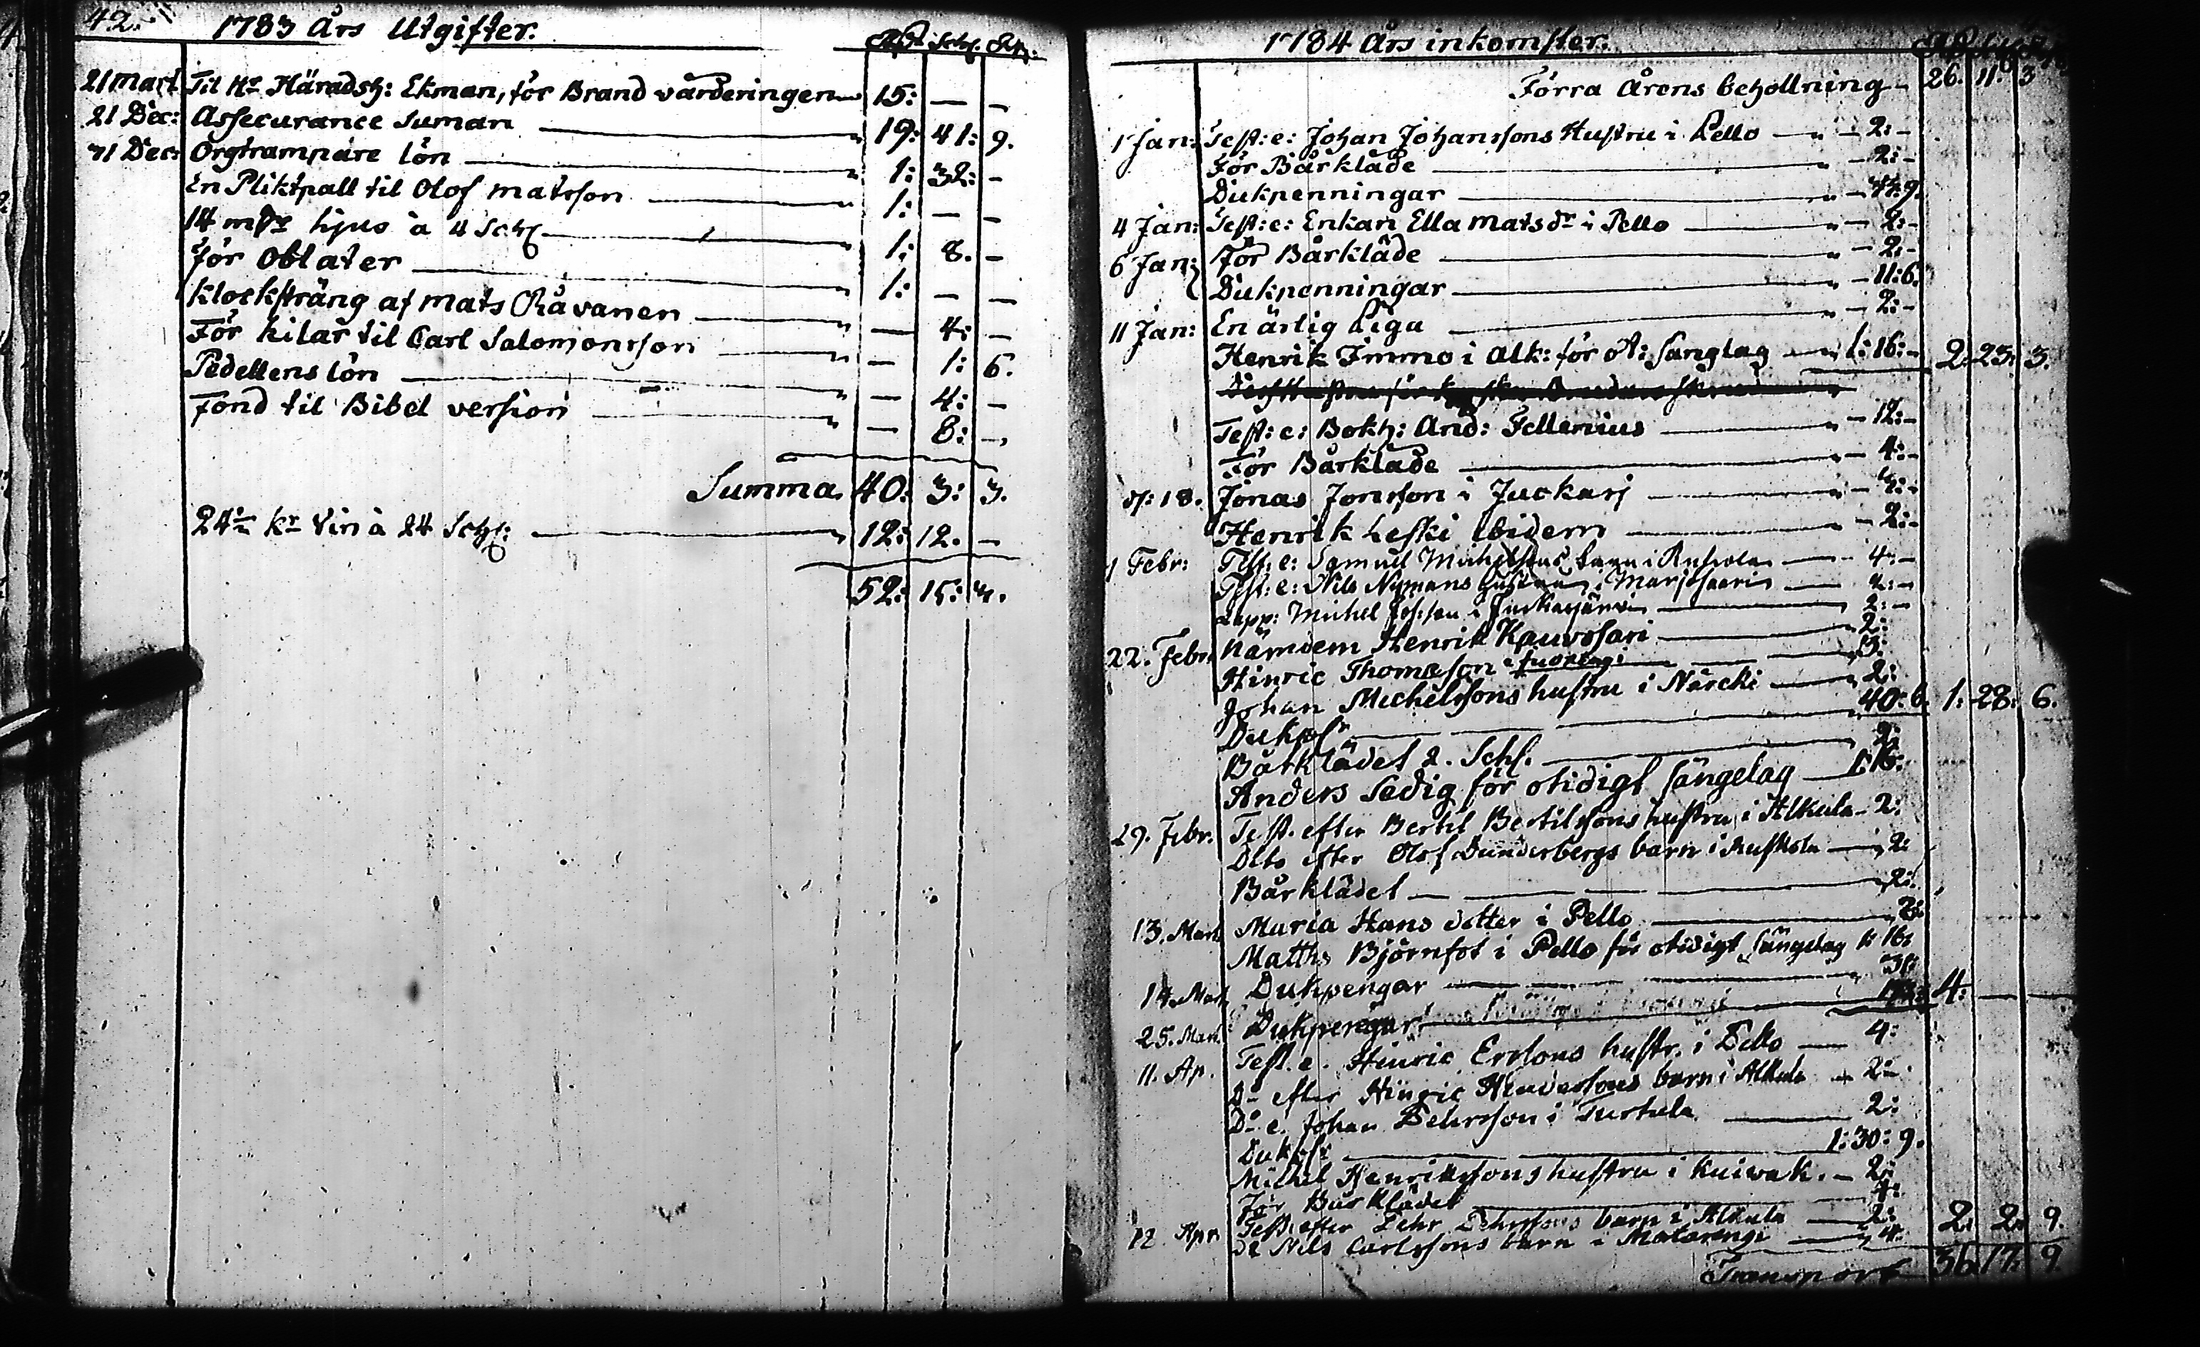 42.
1783 Års Utgifter.
21 Mart. Til Hr Häradsh: Ekman, för Brand värderingen 15: — —
21 Dec: Assecurance Suman 19: 41: 9.
31 Dec: Orgtrampare lön 1: 32: —
En Pliktpall til Olof matsson 1: — —
14 ljus à 4 Sch 1: 8. —
för Oblater 1: — —
Klocksträng af mats Råvanen — 4: —
För kilar til Carl Salomonsson — 1: 6.
Pedellens lön — 4: —
Fond til Bibel version — 8: —
Summa 40: 3: 3.
24½ kr Vin à 24 Sch: 12: 12. —
52: 15: 3.
1784 Års inkomster.
Förra Årens behollning 26. 11: 3
1 Jan: Test: e: Johan Johanssons Hustru i Pello 2: —
För Bårkläde 2: —
Dukpenningar
4 Jan: Test: e: Enkan Ella Mats dr i Pello 2: —
6 Jan: För Bårkläde 2: —
Dukpenningar 11: 6.
11 Jan: En ärlig Piga 2: —
Henrik Immo i Alk: för ot: sänglag 1: 16: — 2. 23: 3.
Test: e: Bokh: And: Fellenius 12: —
För Bårkläde 4: —
18. Jonas Jonsson i Juckasj
Henrik Leski ibidem 2: —
1 Febr: Test: e: Samuel Michelssons barn i 4: —
Test: e: Nils Nymans hustru i Marjosaari 2: —
Lapp: Michel i Juckasjärvi 2: —
22. Febr. Nämdem Henrik Kauvosari 2:
Hinric Thomasson i
Johan Michelssons hustru i Närcki 2:
Dukp 40: 6. 1: 28: 6.
Bårklädet 2. Sch. 2:
Anders Sedig för otidigt sängelag 1: 16:
29. Febr. Test. efter Bertil Bertilssons hustru i Alkula 2:
Dito efter Olof Dunderbergs barn i Ruskola 2:
Bårklädet 2:
13. Mart. Maria Hans dotter i Pello
Matths Björnfot i Pello för otidigt sängelag 1: 16:
14. Mart Dukpengar 4:
25. Mart. Dukpengar
11. Ap. Test. e. Hinric Erssons hustr. i Pello 4:
Do efter Hinric Hindersons barn i Alkula 2:
Do e. Johan Pehrsson i Turtula 2:
Dukp: 1: 30: 9.
Michel Henrikssons hustru i Kuiwak. 2:
För Bårklädet
12 Apr. Test: efter Pehr Pehrssons barn i Alkula 2: 2. 2. 9.
do Nils Carlssons barn i Matarengi 4.
Transport 36. 17. 9.